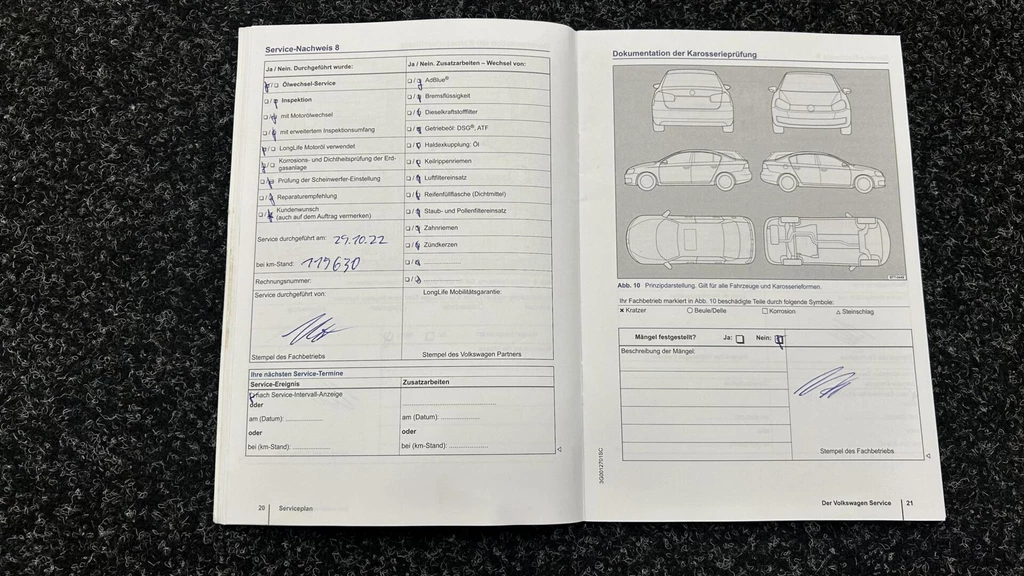 Service-Nachweis 8
Ja / Nein. Durchgeführt wurde:
Ölwechsel-Service
Inspektion
mit Motorölwechsel
mit erweitertem Inspektionsumfang
LongLife Motoröl verwendet
Korrosions- und Dichtheitsprüfung der Erd-
gasanlage
Prüfung der Scheinwerfer-Einstellung
Reparaturempfehlung
Kundenwunsch
(auch auf dem Auftrag vermerken)
Service durchgeführt am: 29.10.22
bei km-Stand: 119630
Rechnungsnummer:
Service durchgeführt von:
Stempel des Fachbetriebs
Ja / Nein. Zusatzarbeiten – Wechsel von:
AdBlue®
Bremsflüssigkeit
Dieselkraftstofffilter
Getriebeöl: DSG®, ATF
Haldexkupplung: Öl
Keilrippenriemen
Luftfiltereinsatz
Reifenfüllflasche (Dichtmittel)
Staub- und Pollenfiltereinsatz
Zahnriemen
Zündkerzen
LongLife Mobilitätsgarantie:
Stempel des Volkswagen Partners
Ihre nächsten Service-Termine
Service-Ereignis
nach Service-Intervall-Anzeige
oder
am (Datum):
oder
bei (km-Stand):
Zusatzarbeiten
am (Datum):
oder
bei (km-Stand):
20 Serviceplan
Dokumentation der Karosserieprüfung
Abb. 10 Prinzipdarstellung. Gilt für alle Fahrzeuge und Karosserieformen.
Ihr Fachbetrieb markiert in Abb. 10 beschädigte Teile durch folgende Symbole:
× Kratzer ○ Beule/Delle □ Korrosion △ Steinschlag
Mängel festgestellt? Ja: Nein:
Beschreibung der Mängel:
Stempel des Fachbetriebs
3G0012701SC
Der Volkswagen Service 21